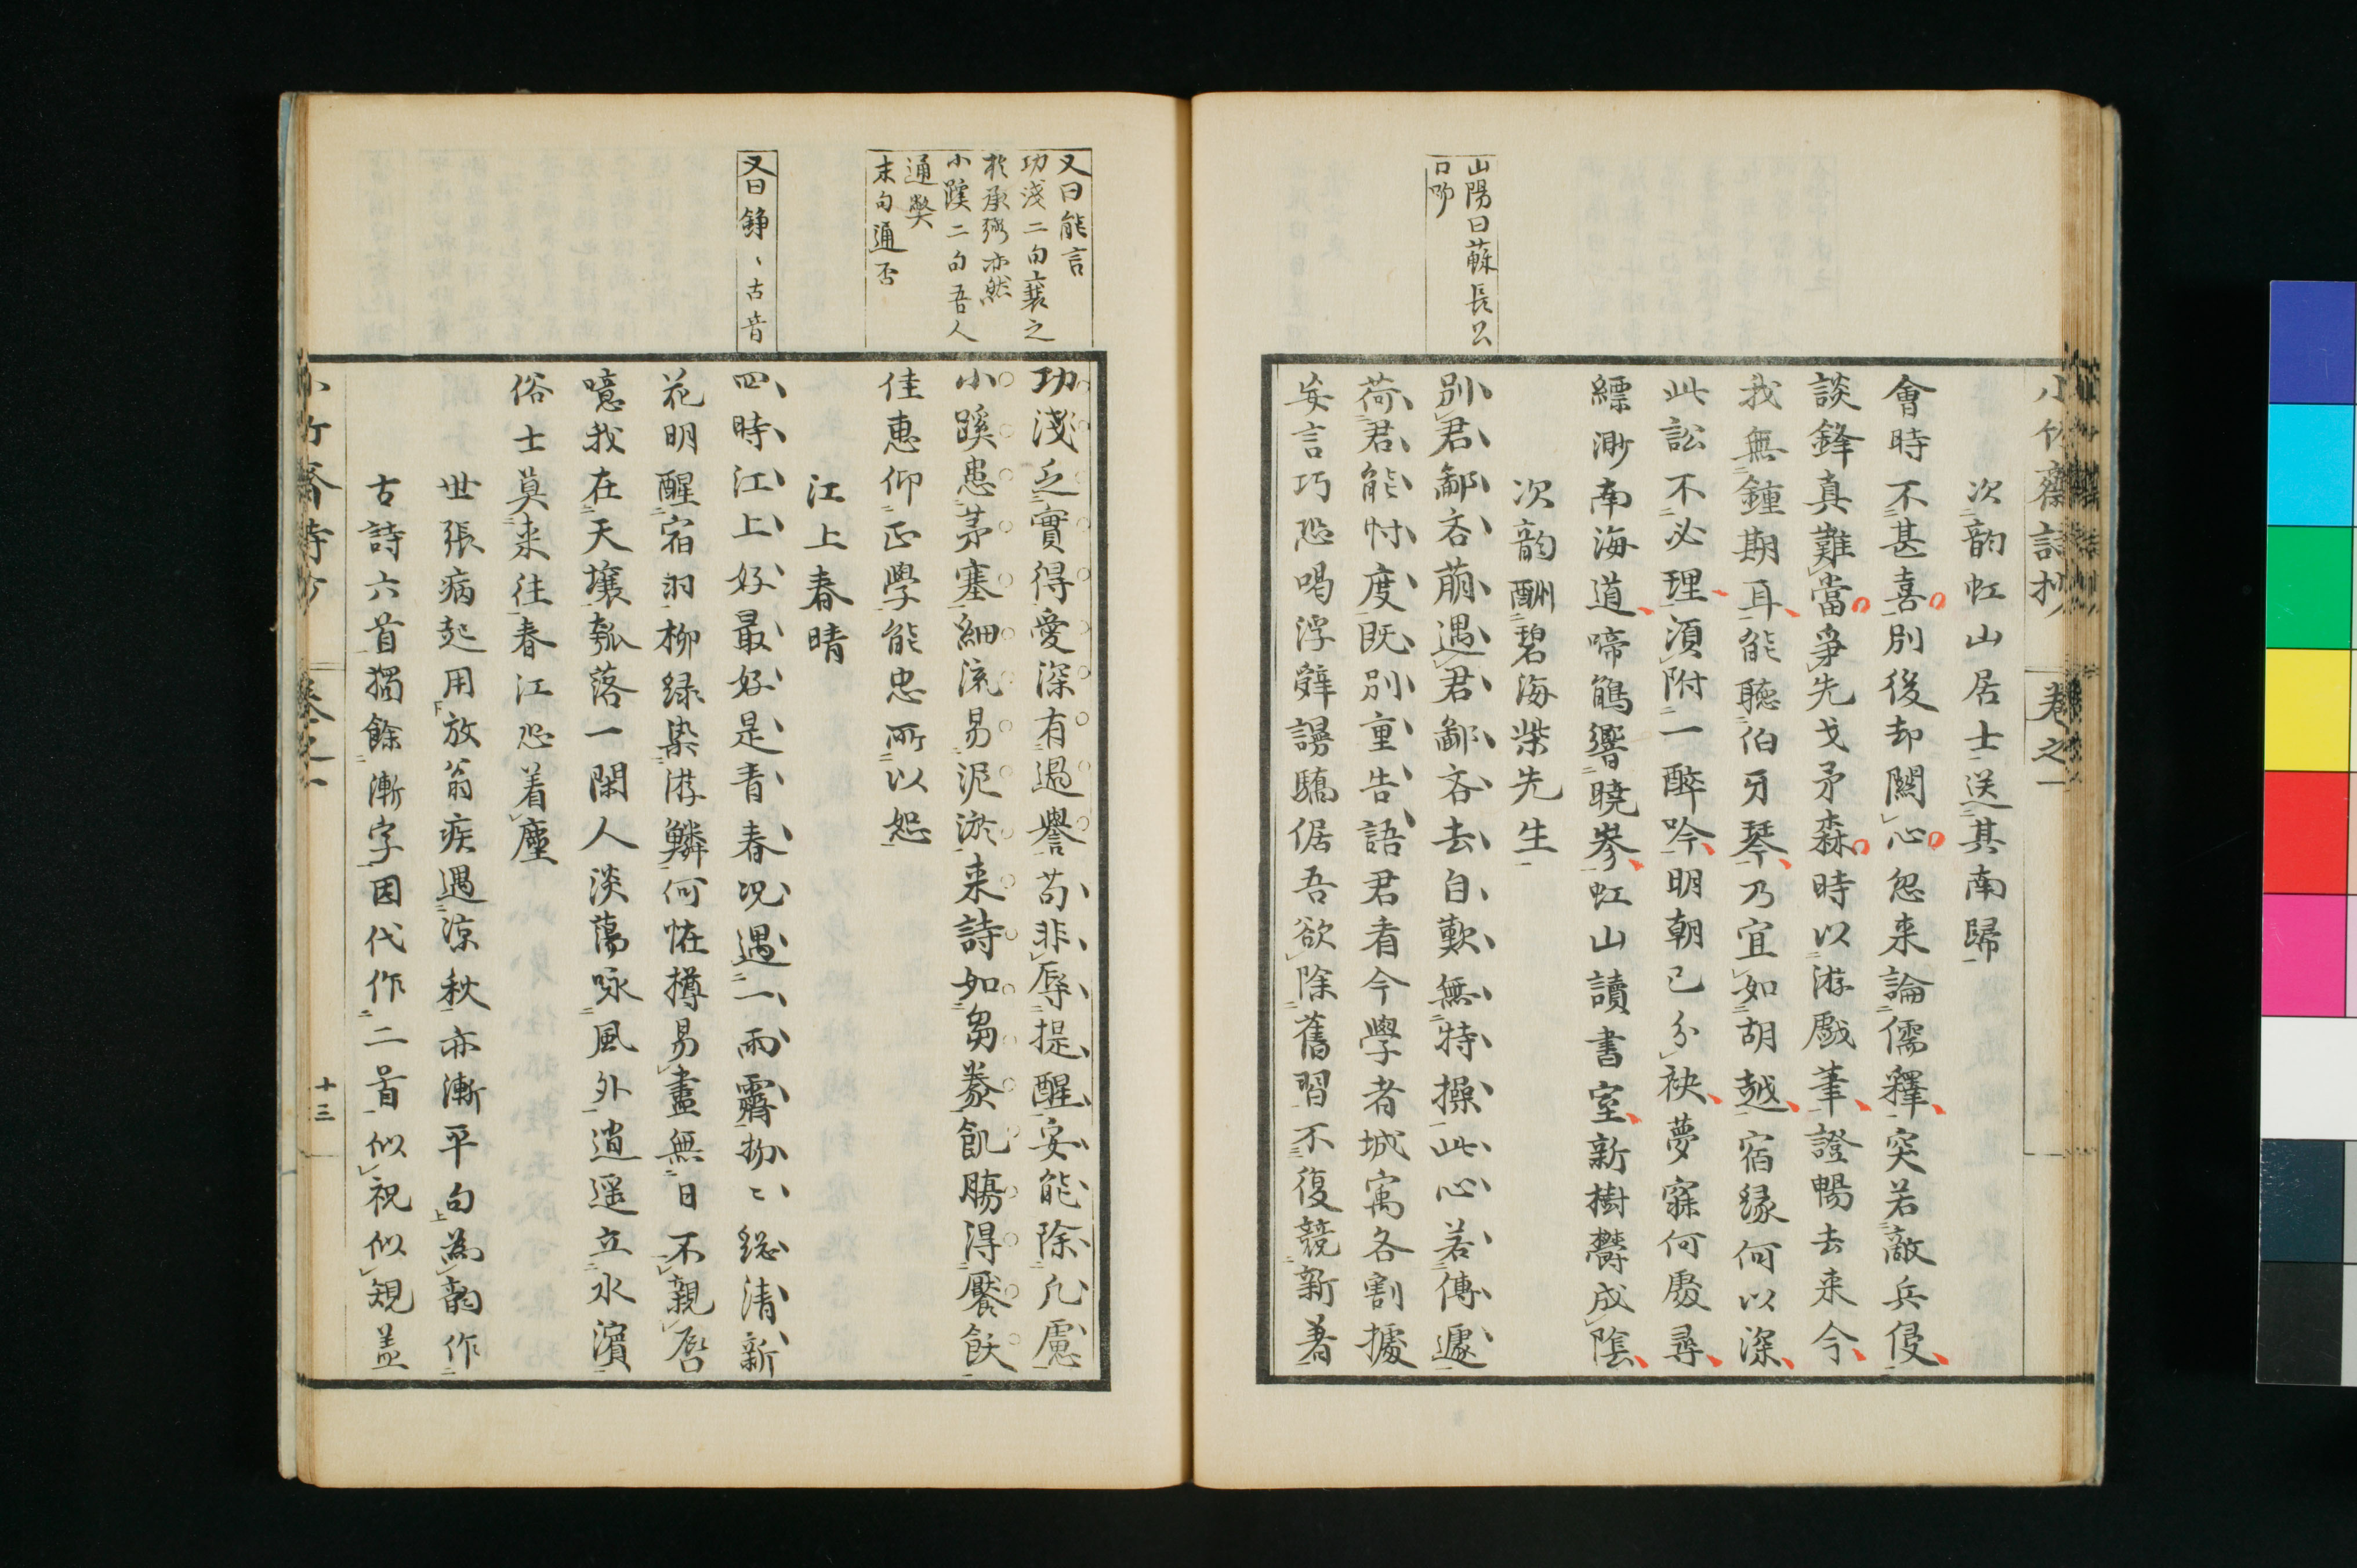 小竹齋詩抄 卷之一
次韵虹山居士送其南歸
會時不甚喜別後却關心忽来論儒釋突若敵兵侵
談鋒真難當爭先戈矛森時以游戲筆證暢去来今
我無鍾期耳能聽伯牙琴乃宜如胡越宿緣何以深
此訟不必理湏附一醉吟明朝已分袂夢寐何處尋
縹渺南海道啼鵑響曉岑虹山讀書室新樹鬱成陰
次韵酬碧海柴先生
山陽曰蘇長公
口吻
別君鄙吝萠遇君鄙吝去自歎無特操此心若傳遽
荷君能忖度既別重告語君看今學者城寓各割據
妄言巧恐喝浮辭謾驕倨吾欲除舊習不復競新著
又曰能言
功淺二句襄之
於承弼亦然
小蹊二句吾人
通獘
末句通否
功淺乏實得愛深有過譽苟非辱提醒安能除凡慮
小蹊患茅塞細流易泥淤来詩如芻豢飢腸得饜飫
佳惠仰正學能忠所以恕
江上春晴
又曰錚、古音
四時江上好最好是青春况遇一雨霽物〻総清新
花明醒宿羽柳緑染游鱗何恠樽易盡無日不親唇
噫我在天壤瓠落一閑人淡蕩咏風外逍遥立水濵
俗士莫来往春江恐着塵
世張病起用放翁疾遇凉秋亦漸平句為韵作
古詩六首獨餘漸字因代作二首似祝似規盖
小竹齋詩抄 卷之一 十三